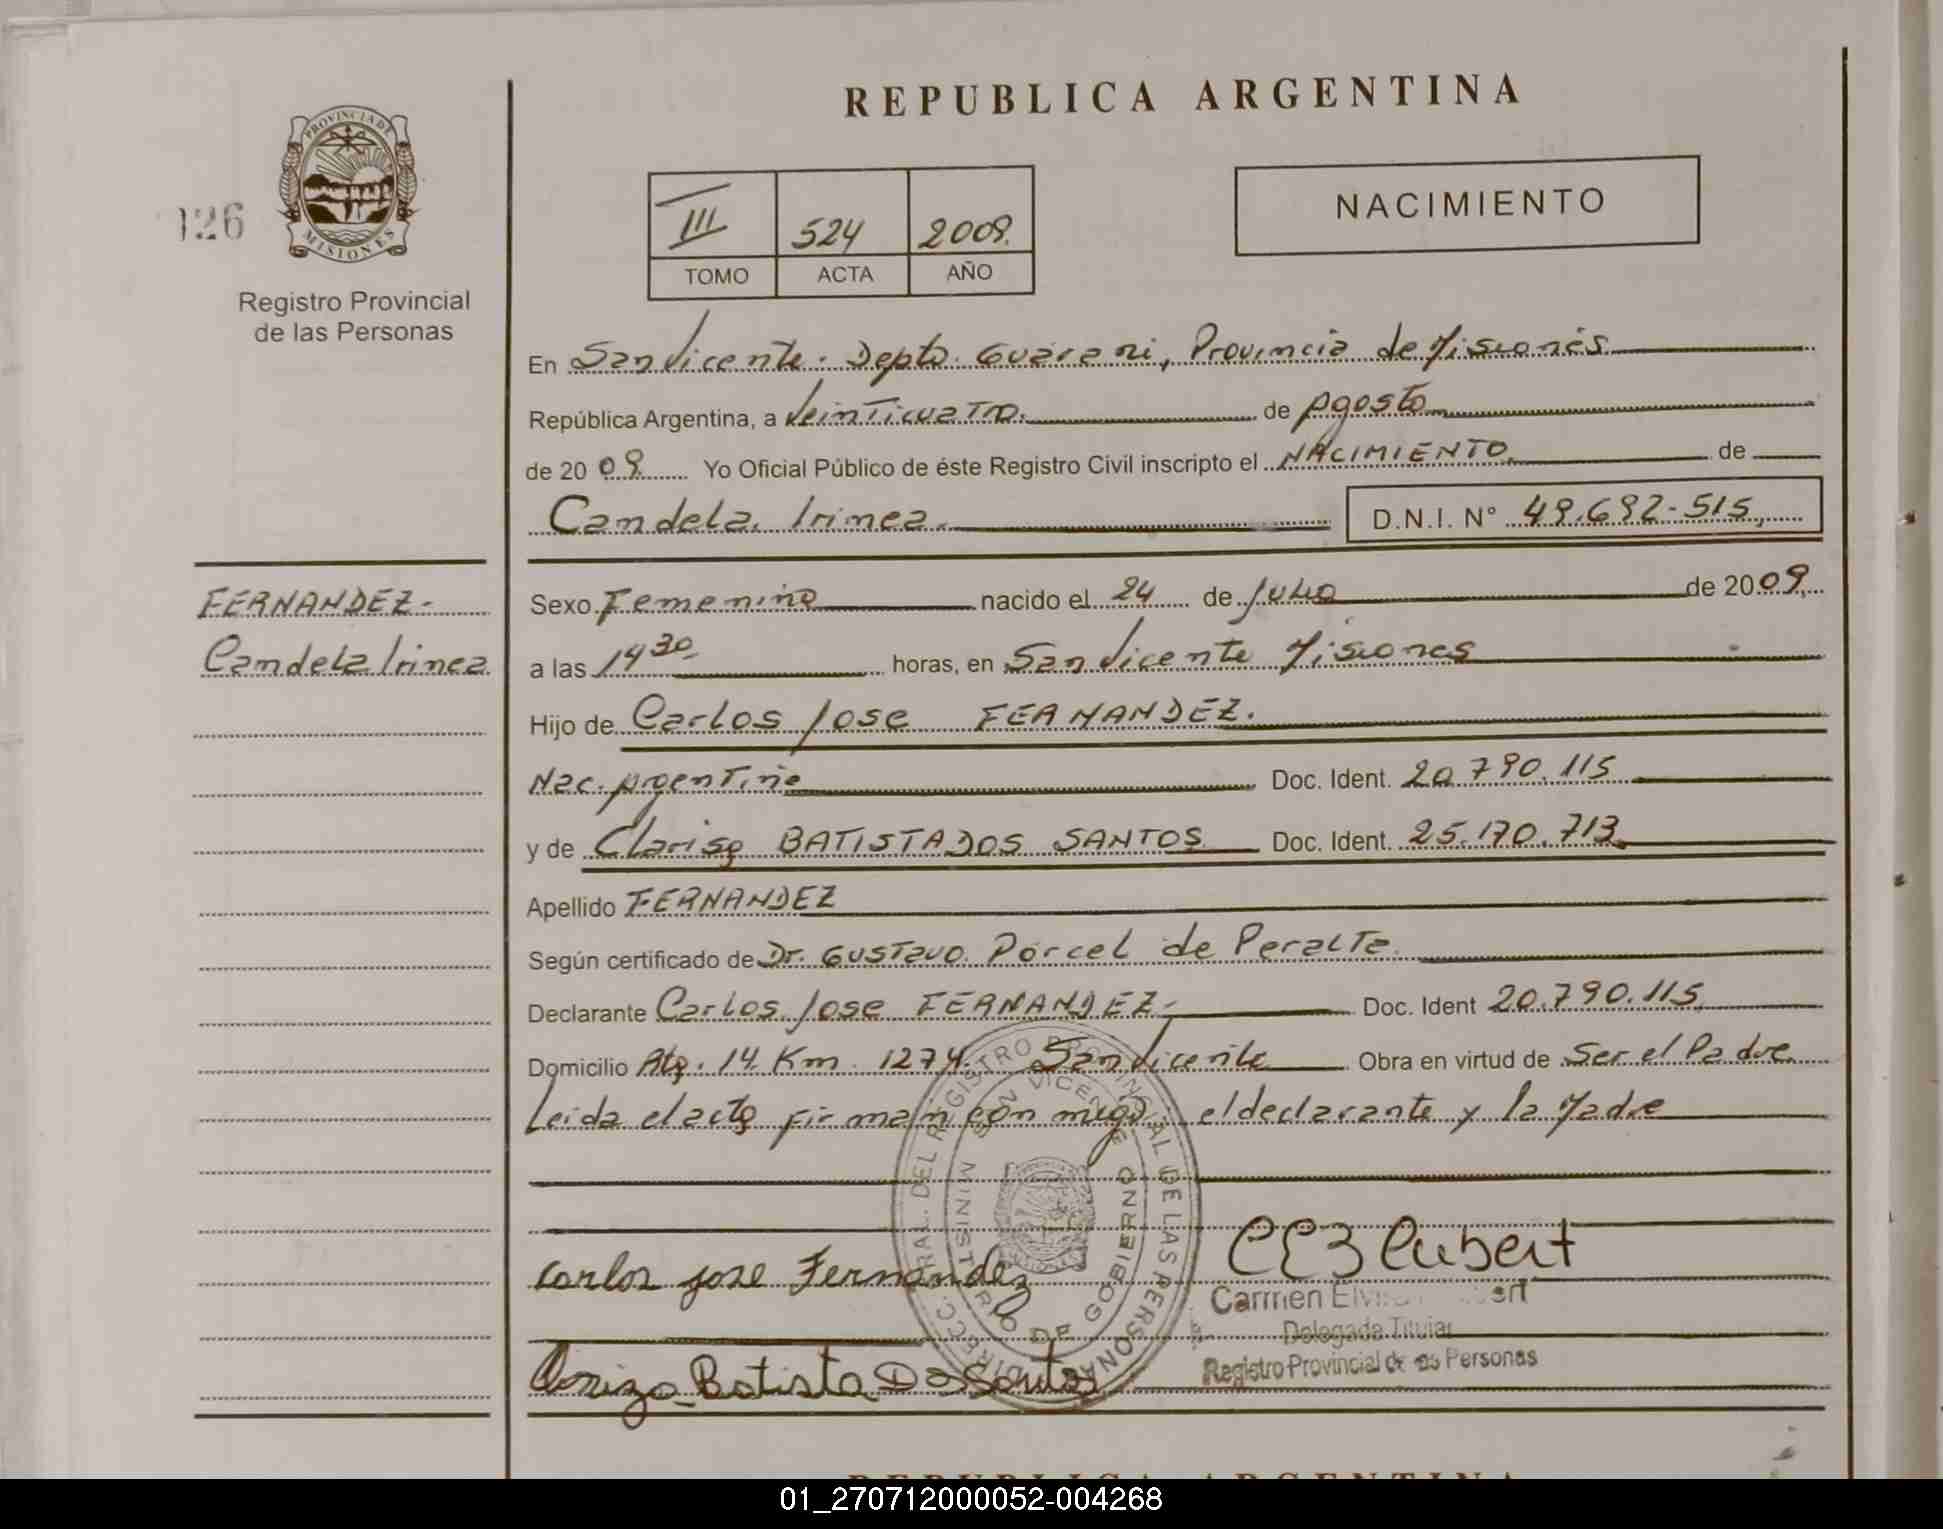 REPUBLICA ARGENTINA
PROVINCIA DE MISIONES
126
Registro Provincial
de las Personas
III 524 2009.
TOMO ACTA AÑO
NACIMIENTO
En San Vicente. Depto. Guarani, Provincia de Misiones
República Argentina, a Veinticuatro. de Agosto
de 2009 Yo Oficial Público de éste Registro Civil inscripto el NACIMIENTO de
Candela Irinea. D.N.I. N° 49.692-515
FERNANDEZ-
Candela Irinea
Sexo Femenino nacido el 24 de Julio de 2009.
a las 14 30 horas, en San Vicente Misiones
Hijo de Carlos Jose FERNANDEZ.
Nac. Argentina Doc. Ident. 20.790.115
y de Clarisa BATISTA DOS SANTOS Doc. Ident. 25.170.713
Apellido FERNANDEZ
Según certificado de Dr. Gustavo Porcel de Peralta.
Declarante Carlos Jose FERNANDEZ- Doc. Ident 20.790.115
Domicilio Alq. 14 Km 1274. San Vicente Obra en virtud de Ser el Padre
Leida el acta firman conmigo el declarante y la Madre
DIRECC. GRAL. DEL REGISTRO PROVINCIAL DE LAS PERSONAS
SAN VICENTE
MINISTERIO DE GOBIERNO
Carlos jose Fernandez
Carmen
Delegada Titular
Registro Provincial de las Personas
Batista Dos Santos
REPUBLICA ARGENTINA
01_270712000052-004268